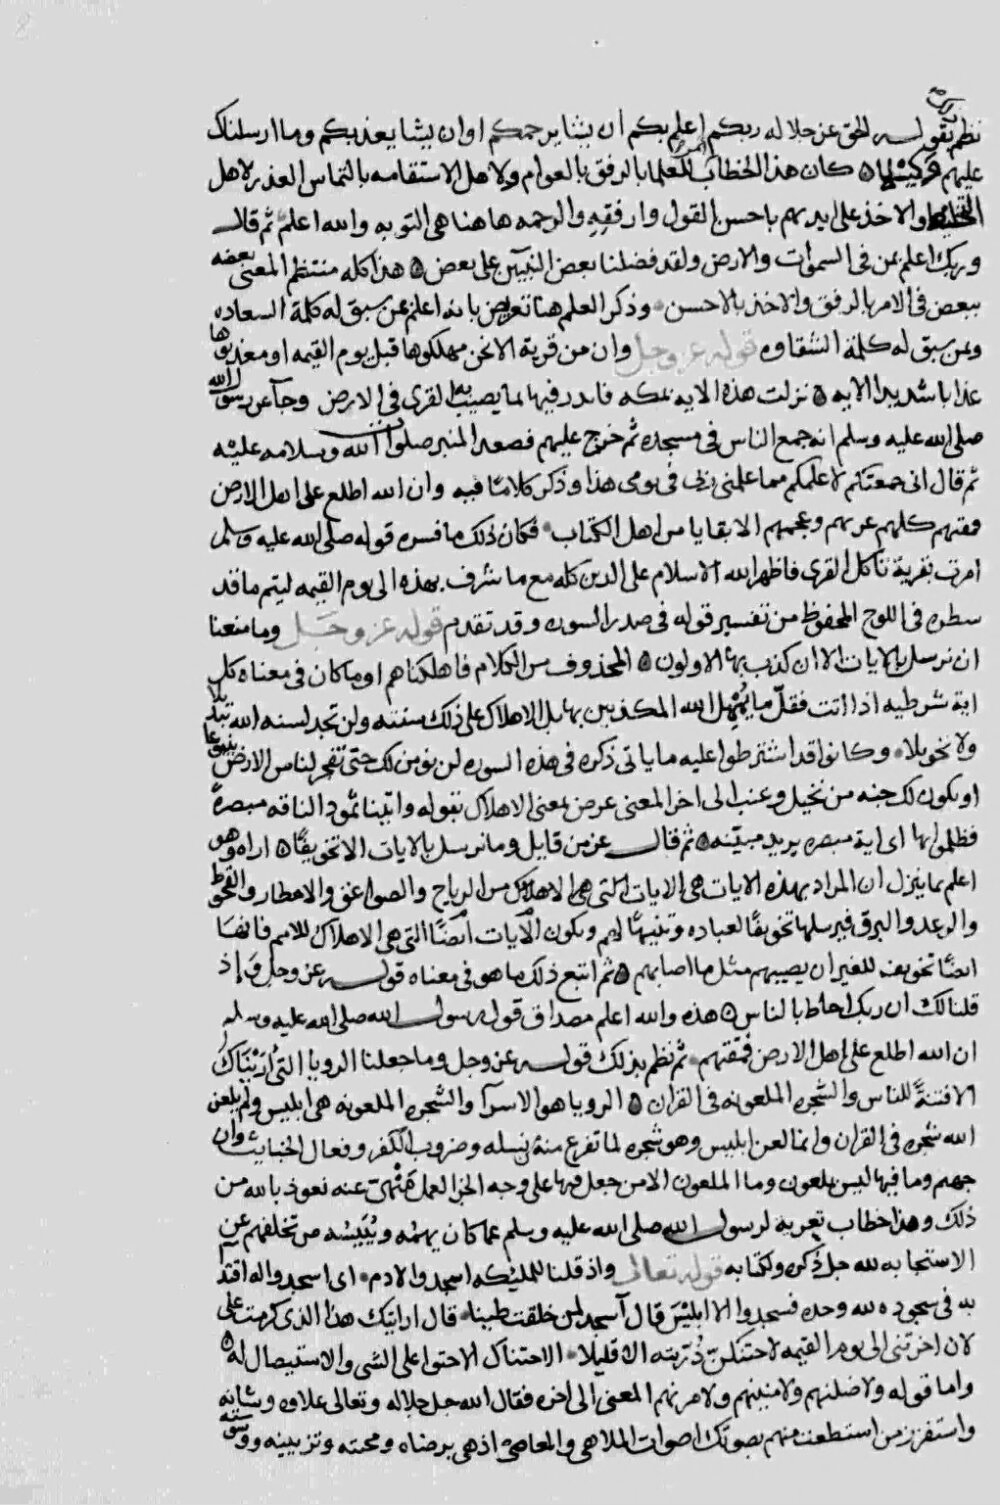 بذلك
نظم بقوله الحق عز جلاله ربكم اعلم بكم ان يشا يرحمكم او ان يشا يعذبكم وما ارسلناك
عليهم وكيلا ۞ كان هذا الخطاب للعلما بالرفق بالعوام ولاهل الاستقامه بالتماس العذر لاهل
والاخذ على ايديهم باحسن القول وارفقه والرحمه هاهنا هى التوبه والله اعلم ثم قال
وربك اعلم بمن فى السموات والارض ولقد فضلنا بعض النبيين على بعض ۞ هذا كله منتظم المعنى بعضه
ببعض فى الامر بالرفق والاخذ بالاحسن وذكر العلم هنا تعريض بانه اعلم بمن سبق له كلمة السعاده
وبمن سبق له كلمة الشقاوه قوله عز وجل وان من قرية الا نحن مهلكوها قبل يوم القيمه او معذبوها
عذابا شديدا الايه ۞ نزلت هذه الايه بمكه فاندر فيها بما يصيب به القرى فى الارض وجا عن رسول الله
صلى الله عليه وسلم انه جمع الناس فى مسجده ثم خرج عليهم فصعد المنبر صلوات الله وسلامه عليه
ثم قال انى جمعتكم لاعلمكم مما علمنى ربى فى يومى هذا وذكر كلاما فيه وان الله اطلع على اهل الارض
فمقتهم كلهم عربهم وعجمهم الا بقايا من اهل الكتاب فكان ذلك ما فسره قوله صلى الله عليه وسلم
امرت بقرية تاكل القرى فاظهر الله الاسلام على الدين كله مع ما شرف بهذه الى يوم القيمه ليتم ما قد
سطره فى اللوح المحفوظ من تفسير قوله فى صدر السوره وقد تقدم قوله عز وجل وما منعنا
ان نرسل بالايات الا ان كذب بها الاولون ۞ المحذوف من الكلام فاهلكناهم او ما كان فى معناه كل
اية شرطيه اذا اتت فقل ما يمهل الله المكذبين بها بل الاهلاك على ذلك سنته ولن تجد لسنه الله تبديلا
ولا تحويلا وكانوا قد اشترطوا عليه ما ياتى ذكره فى هذه السوره لن نومن لك حتى تفجر لنا من الارض ينبوعا
او يكون لك جنه من نخيل وعنب الى اخر المعنى عرض بمعنى الاهلاك بقوله واتينا ثمود الناقه مبصرة
فظلموا بها اى اية مبصره يريد مبينه ۞ ثم قال عز من قايل وما نرسل بالايات الا تخويفا ۞ اراه وهو
اعلم بما ينزل ان المراد بهذه الايات هى الايات التى هى الاهلاك من الرياح والصواعق والامطار والقحط
والرعد والبرق فيرسلها تخويفا لعباده وتنبيها لهم ويكون الايات ايضا التى هى الاهلاك للامم فانها
ايضا تخويف للغير ان يصيبهم مثل ما اصابهم ۞ ثم اتبع ذلك ما هو فى معناه قوله عز وجل واذ
قلنا لك ان ربك احاط بالناس ۞ هذه والله اعلم مصداق قول رسول الله صلى الله عليه وسلم
ان الله اطلع على اهل الارض فمقتهم ثم نظم بذلك قوله عز وجل وما جعلنا الرويا التى اريناك
الا فتنة للناس والشجره الملعونه فى القران ۞ الرويا هو الاسرآ والشجره الملعونه هى ابليس ولم يلعن
الله شجره فى القران وانما لعن ابليس وهو شجره لما تفرع منه نسله وضروب الكفر وفعال الخبايث وان
جهنم وما فيها ليس بملعون وما الملعون الا من جعل فيها على وجه الجزا لعمل نهى عنه نعوذ بالله من
ذلك وهذا خطاب تعزيه لرسول الله صلى الله عليه وسلم عما كان يهمه ويئسه من تخلفهم عن
الاستجابه لله جل ذكره ولكتابه قوله تعالى واذ قلنا للمليكه اسجدوا لادم اى اسجدوا له اقتدا
به فى سجوده لله وحده فسجدوا الا ابليس قال آسجد لمن خلقت طينا قال ارايتك هذا الذى كرمت على
لان اخرتنى الى يوم القيمه لاحتنكن ذريته الا قليلا الاحتناك الاحتوا على الشى والاستيصال له ۞
واما قوله ولاضلنهم ولامنينهم ولامرنهم المعنى الى اخره فقال الله جل جلاله وتعالى علاوه وشانه
واستفزز من استطعت منهم بصوتك اصوات الملاهى والمعاصى اذ هى برضاه ومحبته وتزيينه ووسوسته